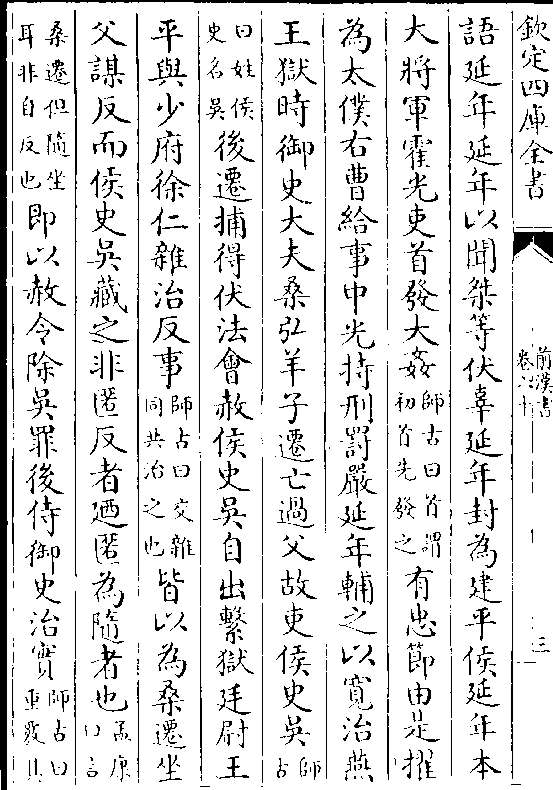 欽定四庫全書
前漢書
卷六十
三
語延年延年以聞桀等伏辜延年封為建平侯延年本
大將軍霍光吏首發大姦師古曰首謂初首先發之有忠節由是擢
為太僕右曹給事中光持刑罰嚴延年輔之以寬治燕
王獄時御史大夫桑弘羊子遷亡過父故吏侯史吳師古
曰姓侯史名吳後遷捕得伏法會赦侯史吳自出繫獄廷尉王
平與少府徐仁雜治反事師古曰交雜同共治之也皆以為桑遷坐
父謀反而侯史吳藏之非匿反者迺匿為隨者也孟康曰言
桑遷但隨坐耳非自反也即以赦令除吳罪後侍御史治實師古曰重覈其